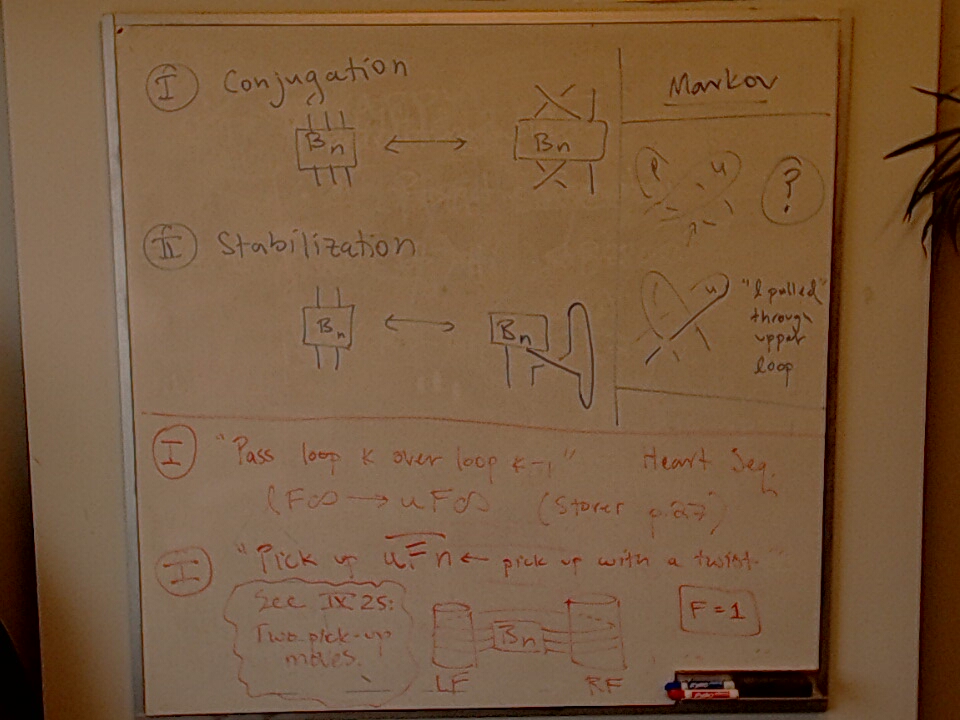 I Conjugation
Markov
Bn
Bn
u
?
II Stabilization
u
"l pulled"
through
upper
loop
Bn
Bn
I "Pass loop K over loop K-1" Heart Seq.
lF∞ → uF∞ (Storer p.27)
II "Pick up uFn ← pick up with a twist"
See IX 25:
Two pick-up
moves.
Bn
F = 1
LF
RF